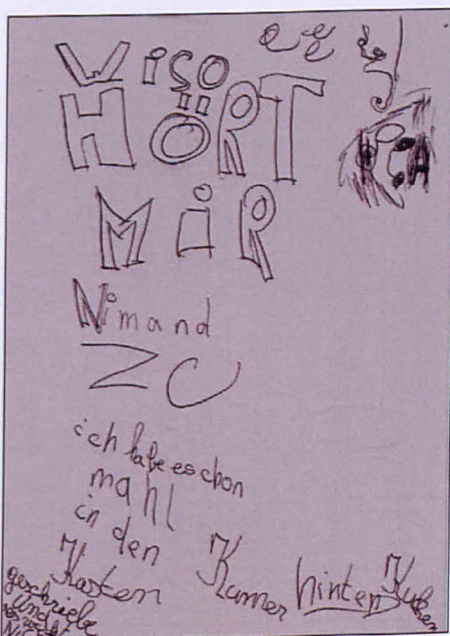 Wiso
HÖRT
MiR
Nimand
ZU
ich habe es schon
mahl
in den
Kasten Kamer hinten
geschriebe
und